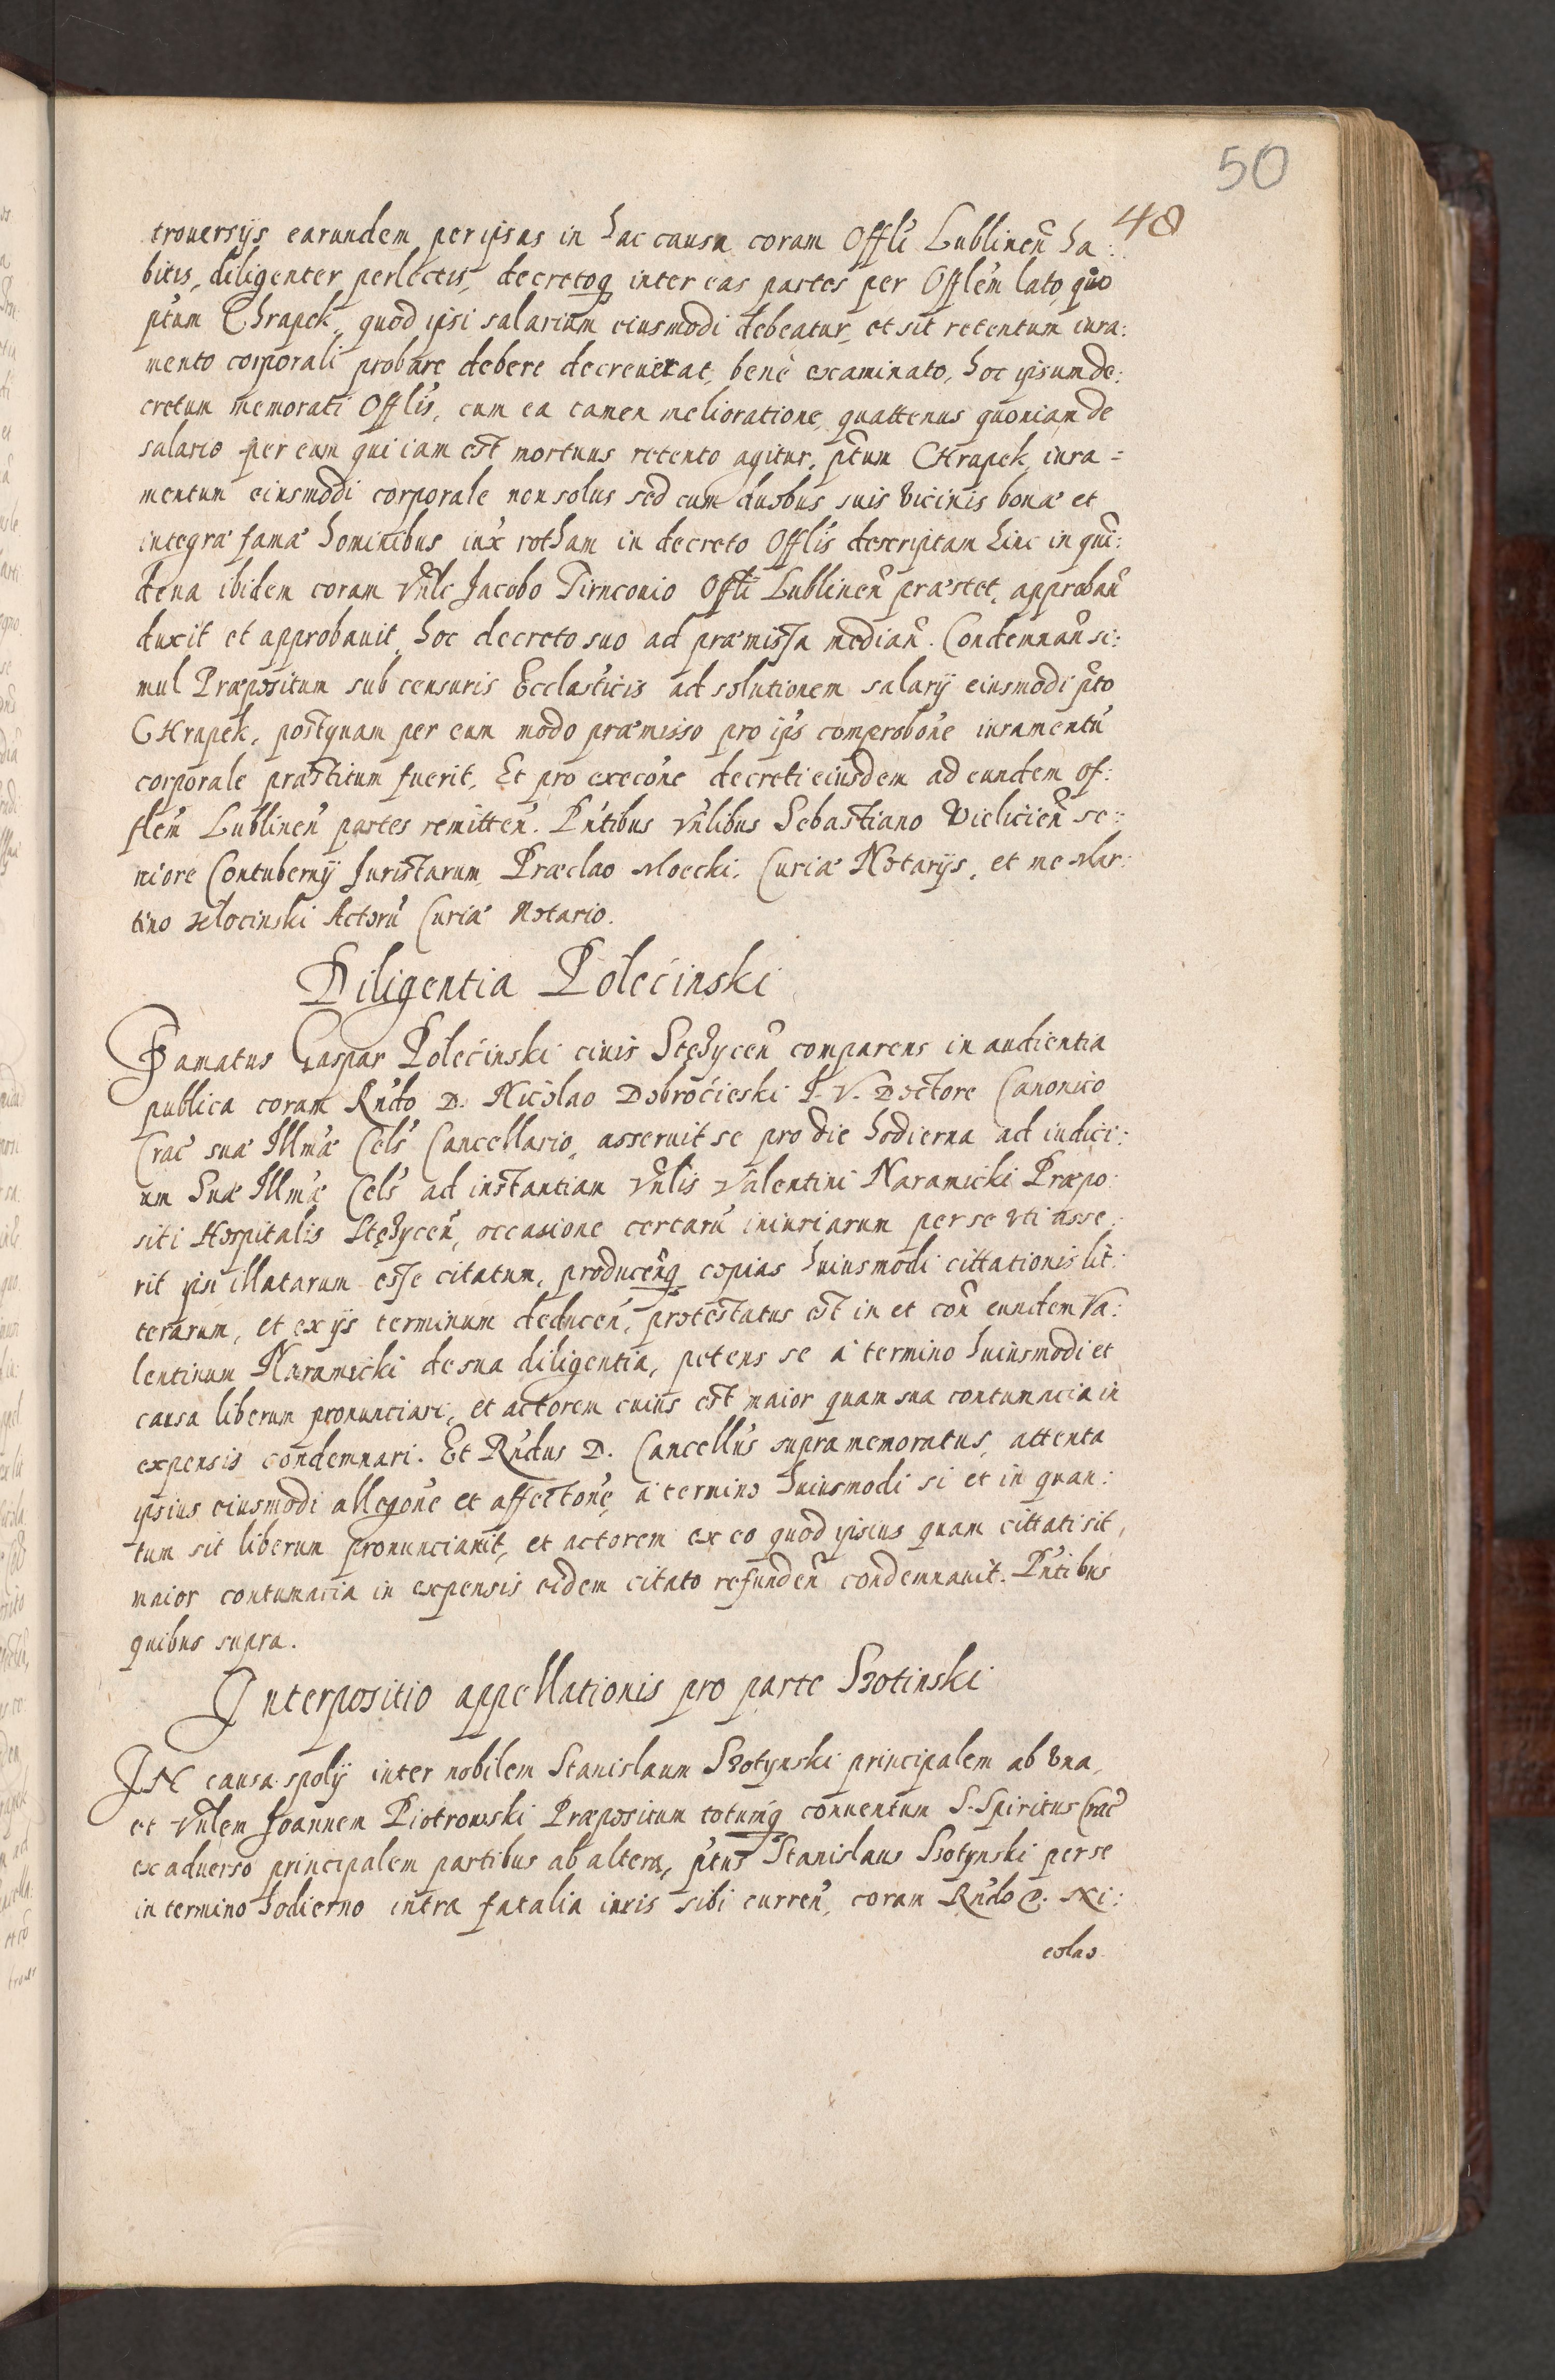 50
48
trouersijs earundem per ipsas in hac causa coram Offli Lublinen̄ ha:
bitis, diligenter perlectis, decretoq inter eas partes per Offlem lato, quo
ptum Chrapek, quod ipsi salarium eiusmodi debeatur, et sit retentum iura:
mento corporali probare debere decreuerat, bene examinato, hoc ipsum de:
cretum memorati Offlis, cum ea tamen melioratione, quattenus quoniam de
salario per eum qui iam est mortuus retento agitur, ptum CHrapek, iura=
mentum eiusmodi corporale non solus sed cum duobus suis vicinis bonæ et
integræ famæ hominibus iux rotham in decreto Offlis descriptam hinc in qui:
dena ibidem coram Vnle Jacobo Tirnconio Offli Lublinen̄ præstet, approban̄
duxit et approbauit, hoc decreto suo ad præmissa median̄. Condemnan̄ si:
mul Præpositum sub censuris Ecclasticis ad solutionem salarij eiusmodi pto
CHrapek, postquam per eum modo præmisso pro ips comprobone iuramentū
corporale præstitum fuerit. Et pro execone decreti eiusdem ad eundem Of:
flem Lublinen̄ partes remitten̄. Pntibus Vnlibus Sebastiano Vielicien̄ se:
niore Contubernij Juristarum, Præclao Moecki, Curiæ Notarijs, et me Mar:
tino Klocinski Actorū Curiæ Notario.
Diligentia Polecinski
Famatus Gaspar Polecinski ciuis Stężycen̄ comparens in audientia
publica coram Rndo D. Nicolao Dobrocieski I. V. Doctore Canonico
Crac suæ Illmæ Cels Cancellario, asseruit se pro die hodierna ad iudici:
um Suæ Illmæ Cels ad instantiam Vnlis Valentini Naramicki Præpo:
siti Hospitalis Stężycen̄, occasione certarū iniuriarum per se vti asse:
rit ipsi illatarum esse citatum, producen̄q copias huiusmodi cittationis lit:
terarum, et ex ijs terminum deducen̄, protestatus est in et con̄ eundem Va:
lentinum Naramicki de sua diligentia, petens se a termino huiusmodi et
causa liberum pronunciari, et actorem cuius est maior quam sua contumacia in
expensis condemnari. Et Rndus D. Cancellus supramemoratus, attenta
ipsius eiusmodi allegone et affectone, a termino huiusmodi si et in quan:
tum sit liberum pronunciauit, et actorem ex eo quod ipsius quam cittati sit,
maior contumacia in expensis eidem citato refunden̄ condemnauit. Pntibus
quibus supra.
Interpositio appellationis pro parte Szotinski
IN causa spolij inter nobilem Stanislaum Szotynski principalem ab vna,
et Vnlem Joannem Piotrowski Præpositum totumq conuentum S. Spiritus Crac
ex aduerso principalem partibus ab altera, ptus Stanislaus Szotynski per se
in termino hodierno intra fatalia iuris sibi curren̄, coram Rndo D. Ni:
colao